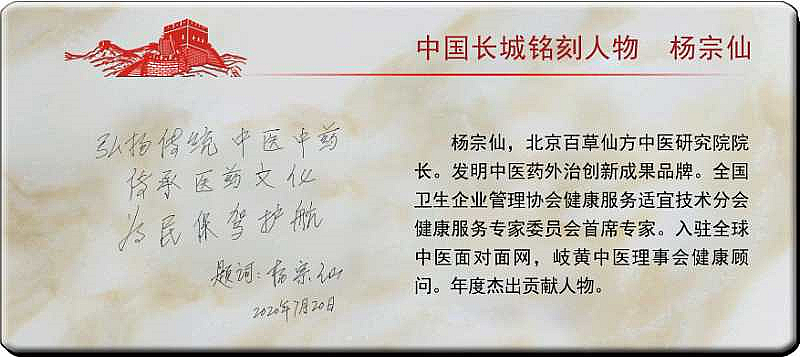 中国长城铭刻人物 杨宗仙
弘扬传统中医中药
传承医药文化
为民保驾护航
题词:杨宗仙
2020年7月20日
杨宗仙，北京百草仙方中医研究院院
长。发明中医药外治创新成果品牌。全国
卫生企业管理协会健康服务适宜技术分会
健康服务专家委员会首席专家。入驻全球
中医面对面网，岐黄中医理事会健康顾
问。年度杰出贡献人物。